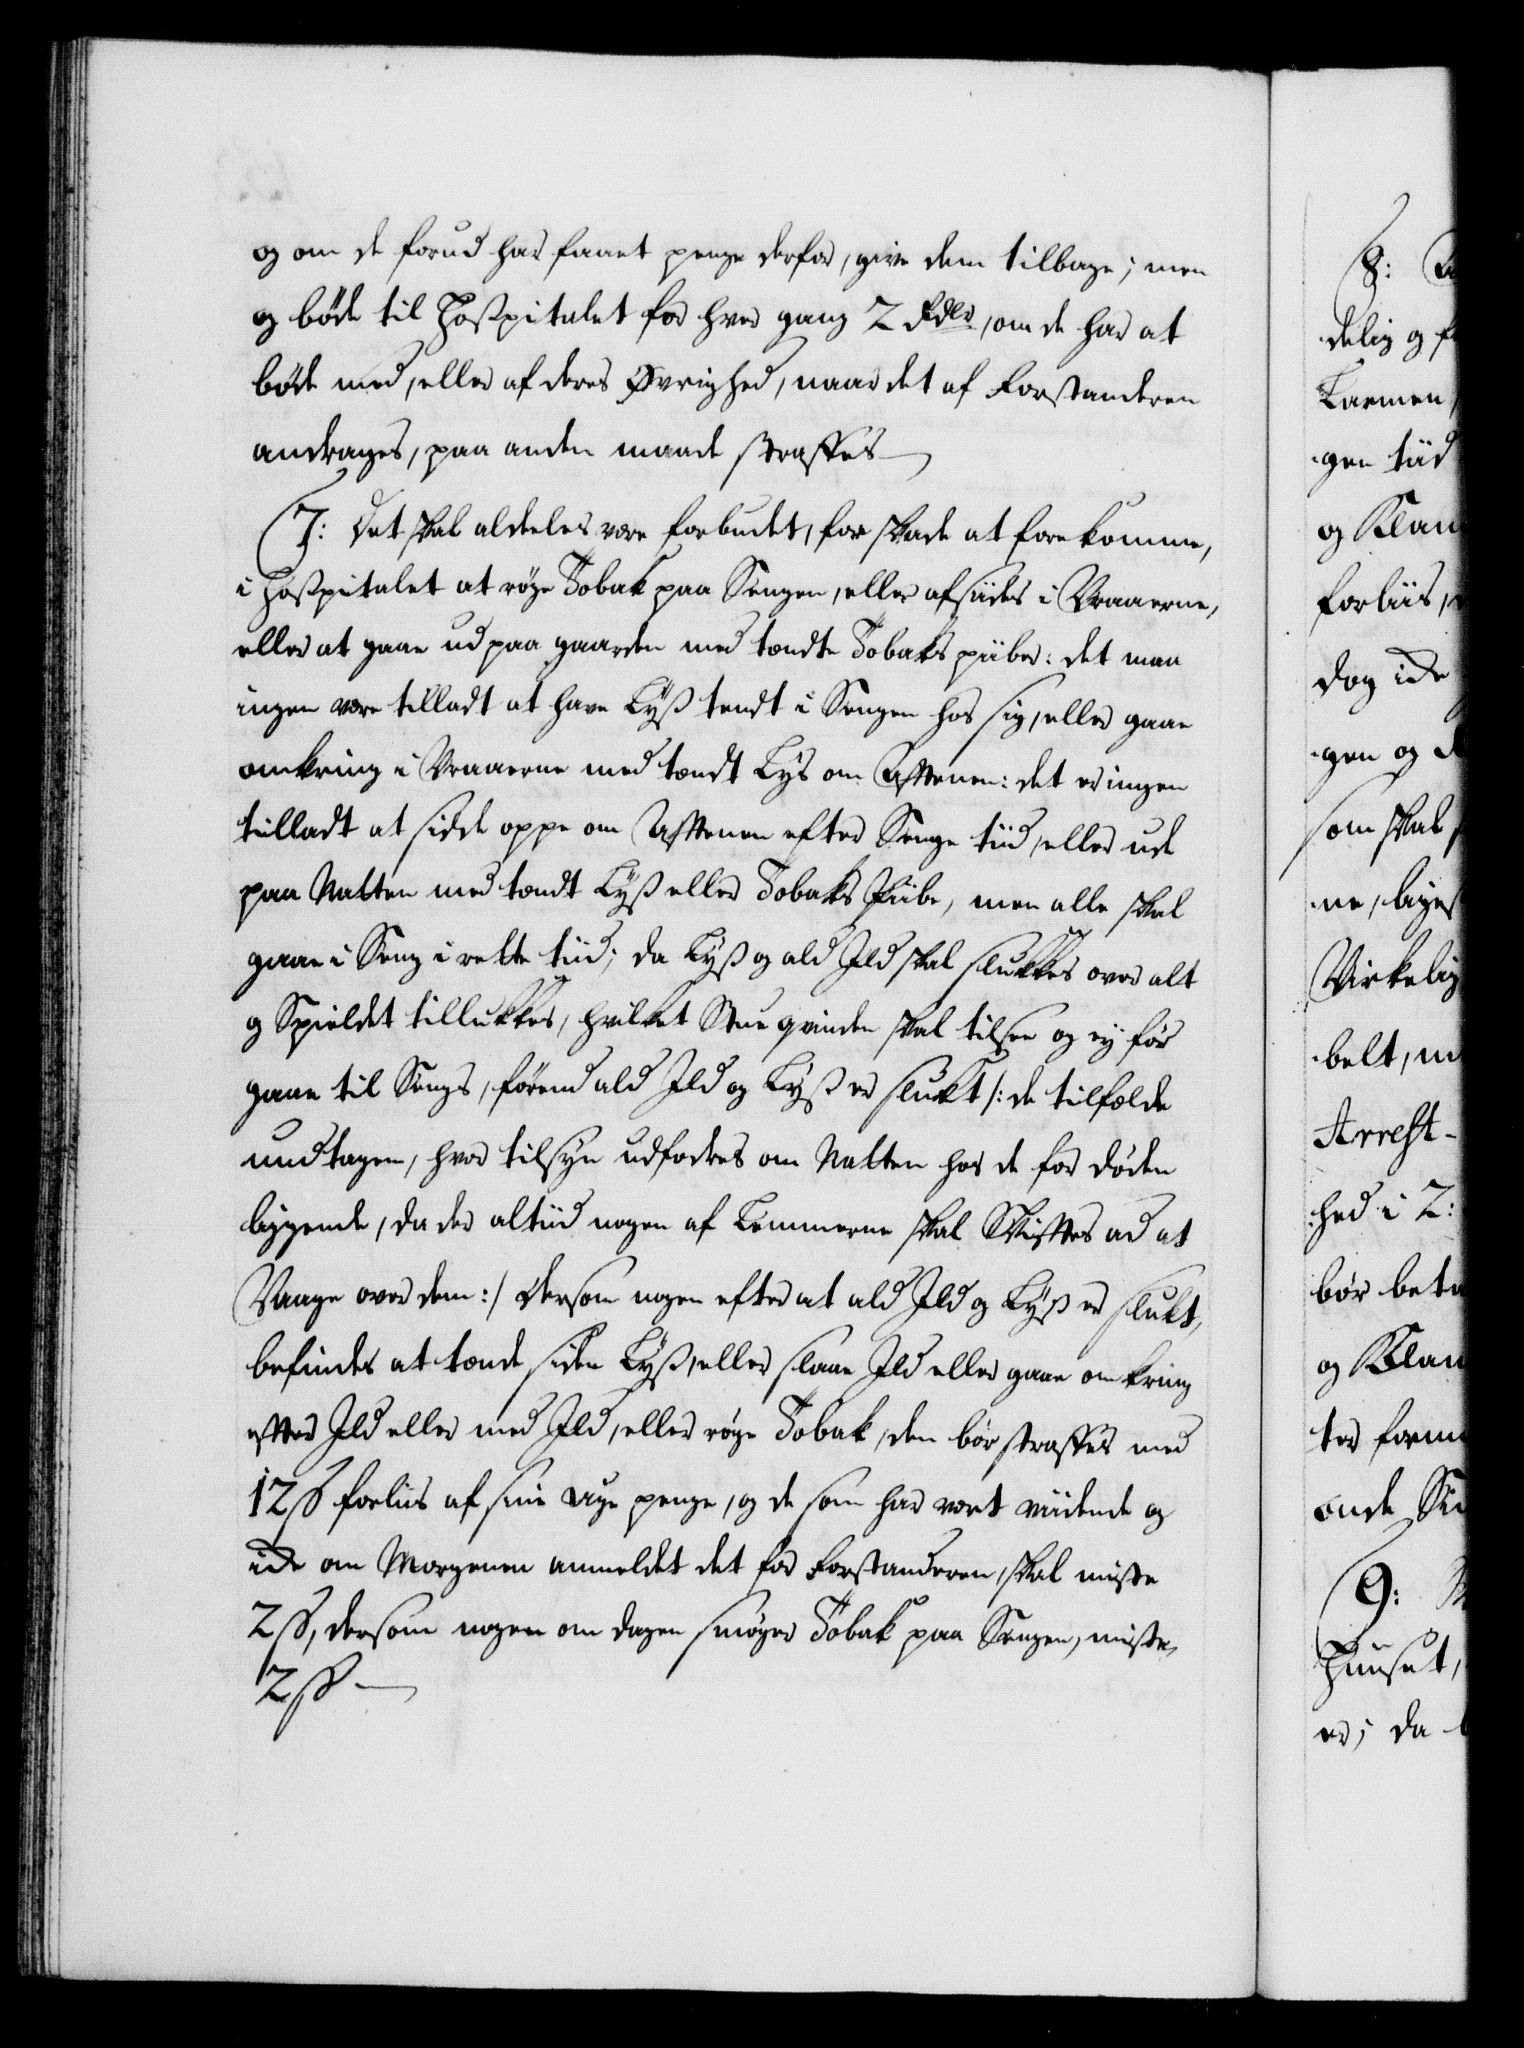 og om de forud har faaet penge derfor, give dem tilbage; men
og bøde til Hospitalet for hver gang 2 Rdlr, om de har at
bøde med, eller af deres Øvrighed, naar det af Forstanderen
andrages, paa anden maade straffes
7: Det skal aldeles være forbudet, for skade at forekomme,
i Hospitalet at røge Tobak paa Sengen, eller afsides i Vraaerne,
eller at gaae ud paa gaarden med tændte Tobaks piiber: det maa
ingen være tilladt at have Lyß tendt i Sengen hos sig, eller gaae
omkring i Vraaerne med tændt Lys om Aftenen: det er ingen
tilladt at sidde oppe om Aftenen efter Senge tiid, eller ude
paa Natten med tændt Lyß eller Tobaks Piibe, men alle skal
gaae i Seng i rette tiid; da Lyß og ald Ild skal slukkes over alt
og Spieldet tillukkes, hvilket Stue qvinden skal tilsee og ej før
gaae til Sengs, førend ald Ild og Lyß er slukt /: de tilfælde
undtagen, hvor tilsyn udfodres om Natten hos de for døden
liggende, da der altiid nogen af Lemmerne skal Skiftes ad at
Vaage over dem :/ Dersom nogen efter at ald Ild og Lyß er slukt,
befindes at tænde siden Lyß, eller slaae Ild eller gaae omkring
efter Ild eller med Ild, eller røge Tobak, den bør straffes med
12 ß forliis af sine Uge penge, og de som har vært viidende og
icke om Morgenen anmeldet det for Forstanderen, skal miste
2 ß, dersom nogen om dagen smøger Tobak paa Sengen, miste,
2 ß
8:
delig og
Larmen
gen tiid
og Klam
forliis,
dog icke
gen og
som skal
ne, liges
Virkelig
belt, m
Arrest-
hed i 2:
bør beta
og Klam
ter form
onde
9:
Huuset,
er; da